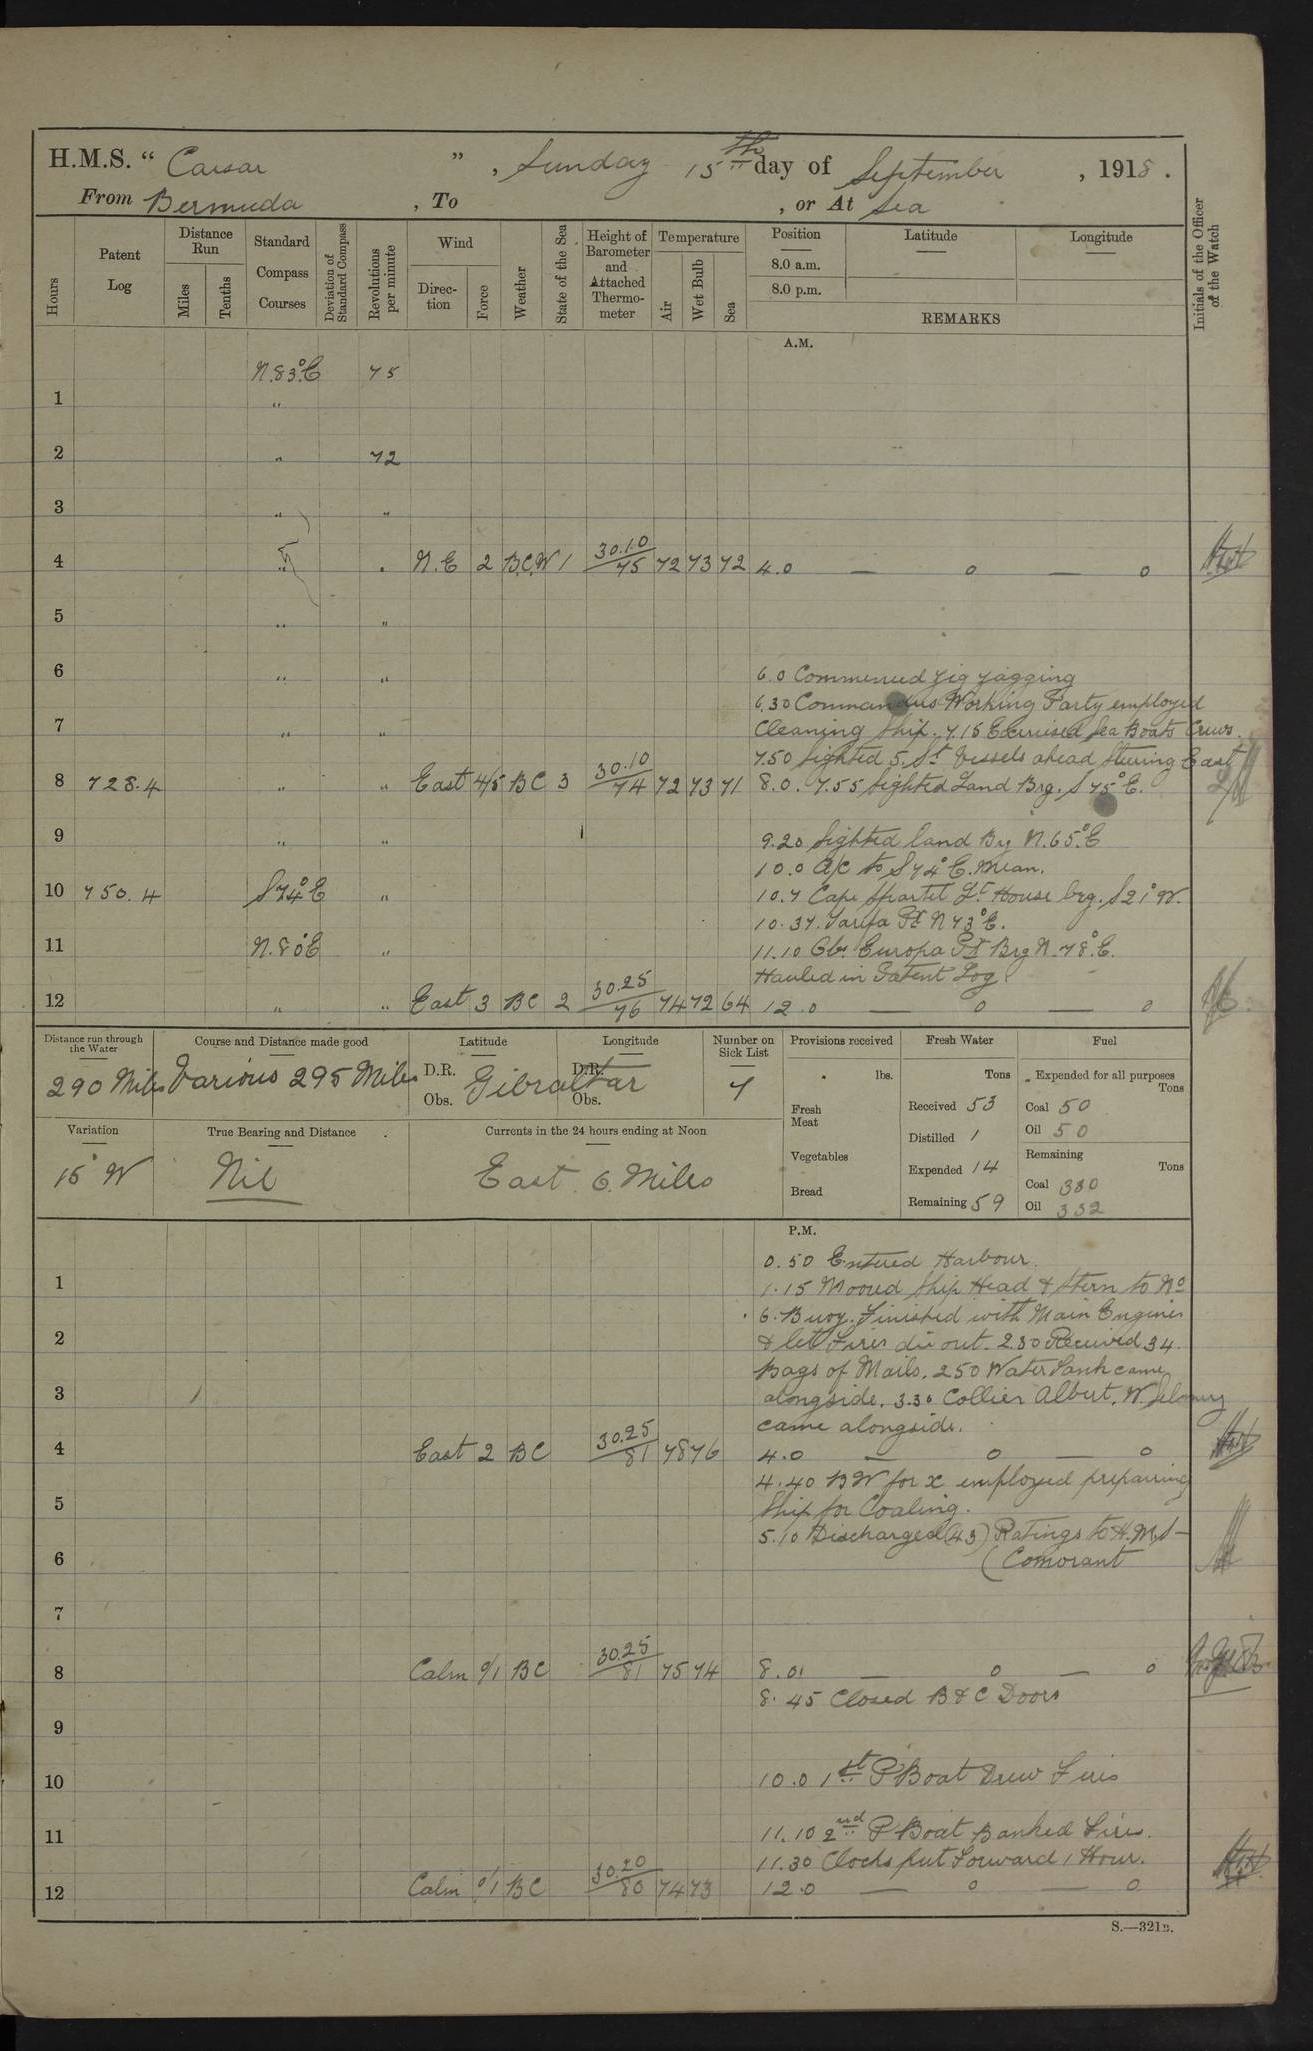 H.M.S. “ Caesar ” , Sunday 15th day of September , 1918 .
From Bermuda , To , or At Sea
Hours
Patent Log
Distance Run
Miles
Tenths
Standard Compass Courses
Deviation of Standard Compass
Revolutions per minute
Wind
Direction
Force
Weather
State of the Sea
Height of Barometer and Attached Thermometer
Temperature
Air
Wet Bulb
Sea
Position Latitude Longitude
8.0 a.m.
8.0 p.m.
REMARKS
Initials of the Officer of the Watch
A.M.
N.83°E 75
1 "
2 " 72
3 " "
4 " " N.E 2 B.C.W 1 30.10/75 72 73 72 4.0 — o — o
5 " "
6 " " 6.0 Commenced zig zagging
6.30 Commandus Working Party employed
7 " " Cleaning Ship. 7.15 Exercised Sea Boats Crews.
7.50 Sighted 5. St Vessels ahead steering East
8 728.4 " " East 4/5 BC 3 30.10/74 72 73 71 8.0. 7.55 Sighted Land Brg. S 75° E.
9 " " 9.20 Sighted land Brg N.65°E
10.0 A/c to S74° E. Mean.
10 750.4 S74°E " 10.7 Cape Spartel Lt House brg. S 21° W.
10.37. Tarifa Pt N 73° E.
11 N.80°E " 11.10 Obs. Europa Pt Brg N. 78° E.
Hauled in Patent Log
12 " " East 3 BC 2 30.25/76 74 72 64 12.0 — o — o
Distance run through the Water
290 Miles
Course and Distance made good
Various 295 Miles
Latitude Longitude
D.R. D.R.
Gibraltar
Obs. Obs.
Number on Sick List
7
Provisions received
lbs.
Fresh Meat
Vegetables
Bread
Fresh Water
Tons
Received 53
Distilled 1
Expended 14
Remaining 59
Fuel
Expended for all purposes
Tons
Coal 50
Oil 50
Remaining
Tons
Coal 380
Oil 332
Variation
15° W
True Bearing and Distance
Nil
Currents in the 24 hours ending at Noon
East 6. Miles
P.M.
0.50 Entered Harbour.
1 1.15 Moored Ship Head & Stern to No
6. Buoy. Finished with Main Engines
2 & let Fires die out. 2.30 Received 34
Bags of Mails. 2.50 Water Tank came
3 alongside. 3.30 Collier Albert. W.
came alongside.
4 East 2 BC 30.25/81 78 76 4.0 — o — o
4.40 BW for x employed preparing
5 Ship for Coaling.
5.10 Discharged (43) Ratings to H.M.S—
6 (Comorant
7
8 Calm 0/1 BC 30.25/81 75 74 8.0 — o — o
8.45 Closed B & C Doors
9
10 10.0 1st P Boat Drew Fires
11 11.10 2nd P Boat Banked Fires.
11.30 Clocks put Forward 1 Hour.
12 Calm 0/1 BC 30.20/80 74 73 12.0 — o — o
S.—321B.